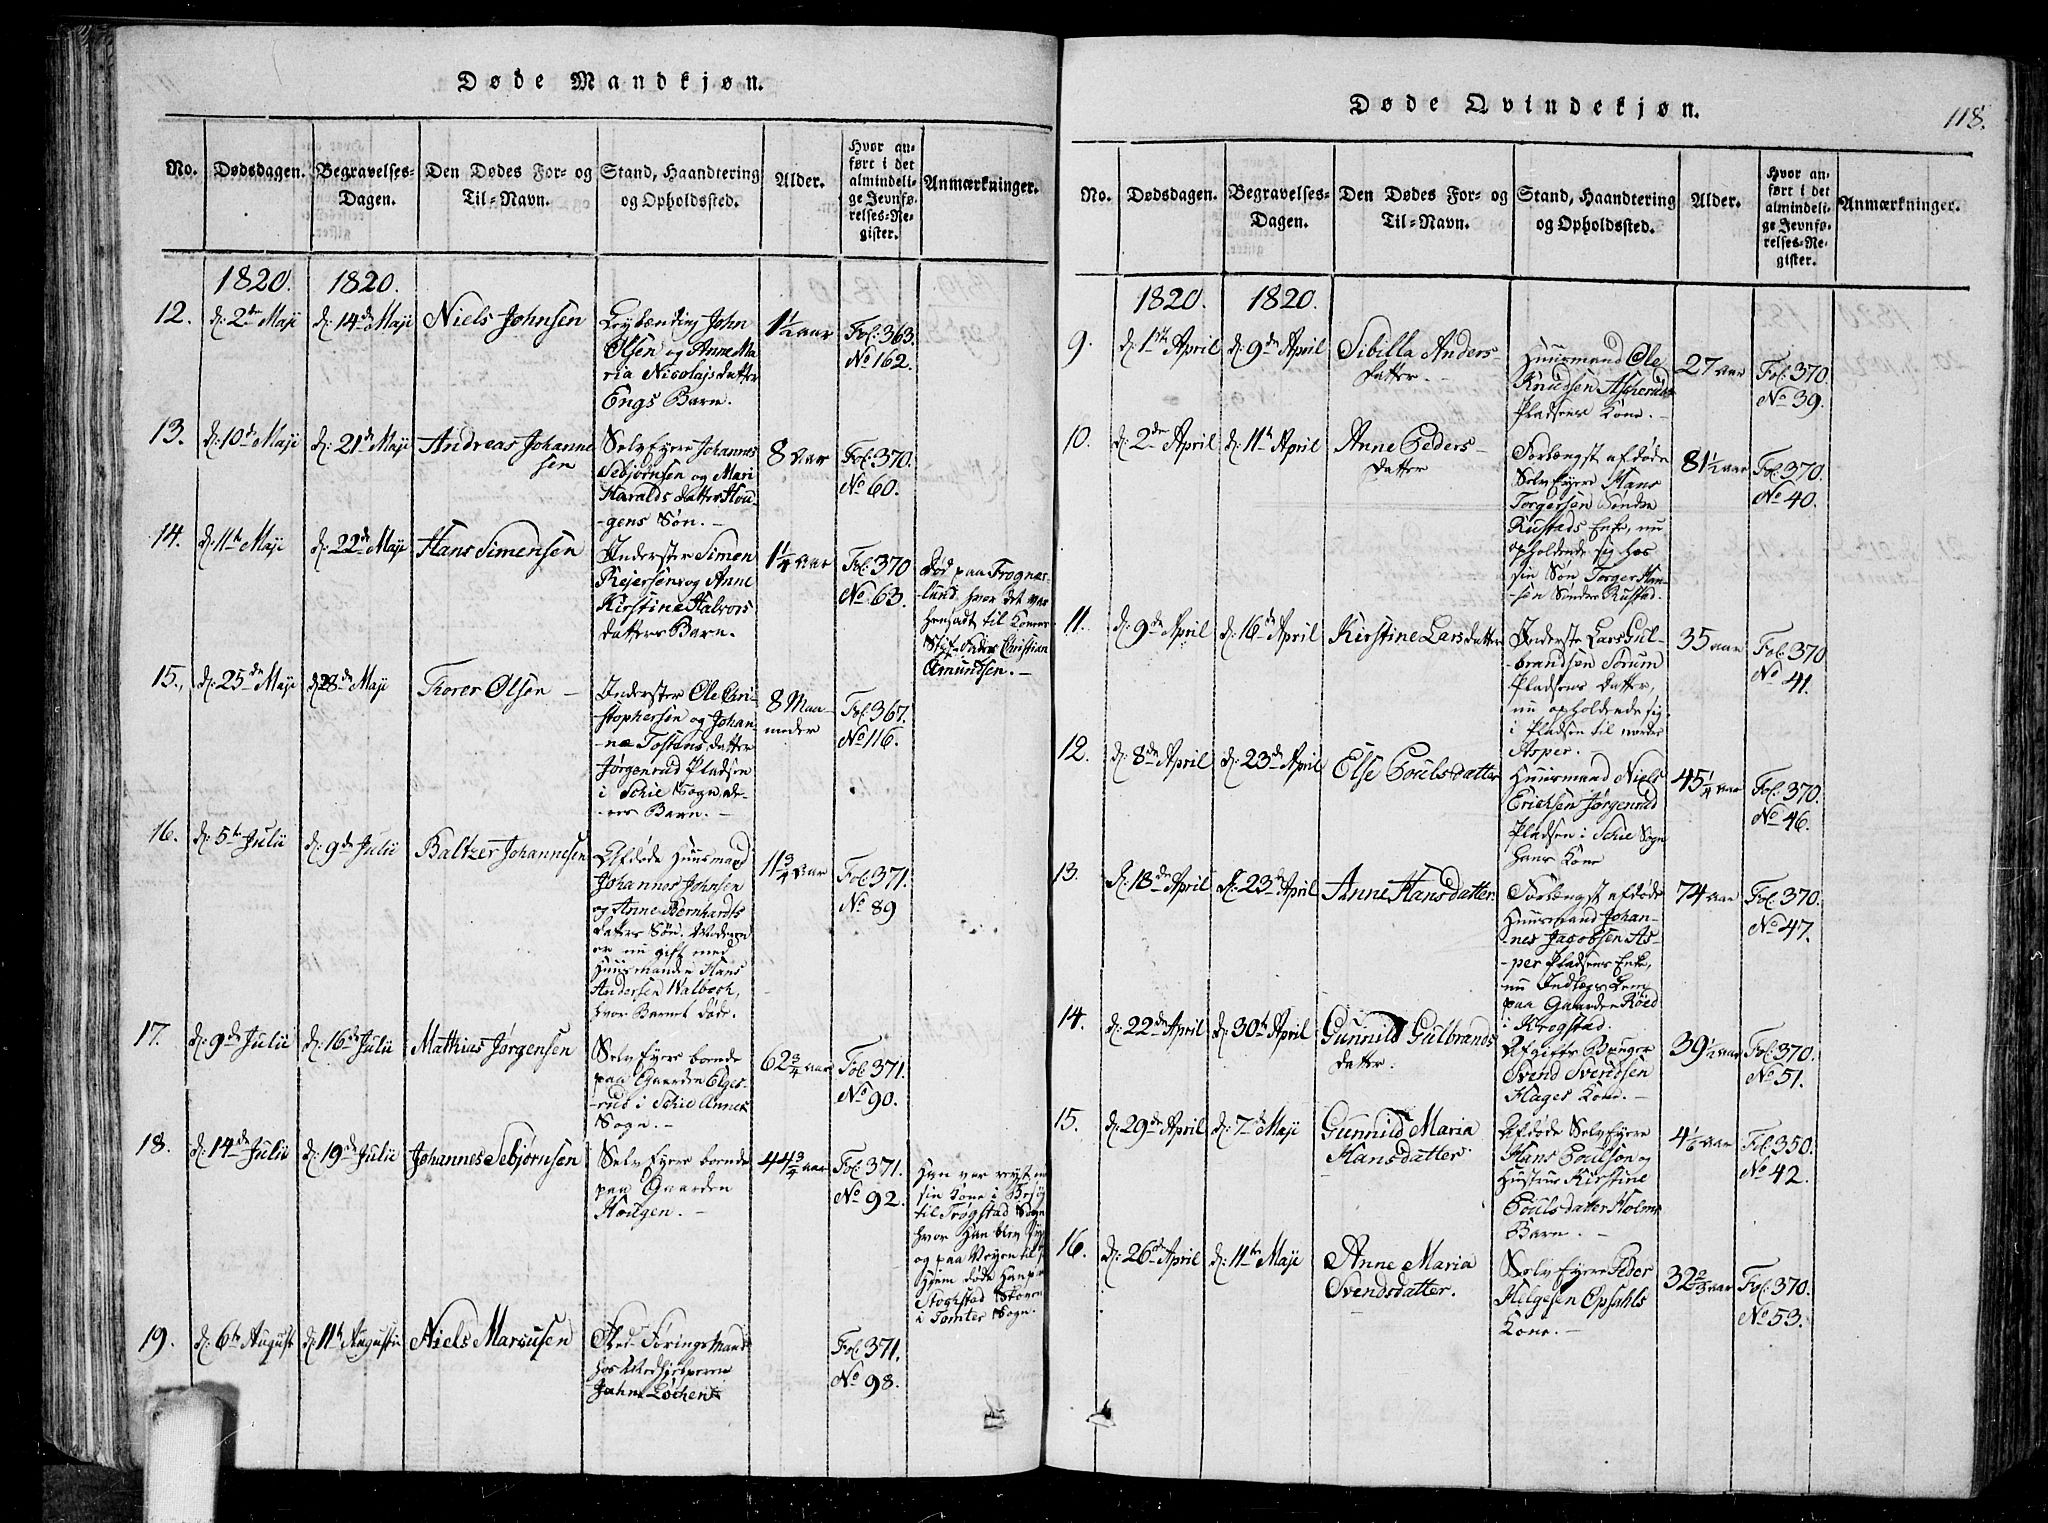 Døde Mandkjøn.
No.
Dødsdagen.
Begravelses-
Dagen.
Den Dødes For- og
Til-Navn.
Stand, Haandtering
og Opholdssted.
Alder.
Hvor an-
ført i det
almindeli-
ge Jevnfø-
relses-Re-
gister.
Anmærkninger.
1820.
1820.
12.
d: 2den Maji
d: 14de Maji
Niels Johnsen
John
Olsen og Anne Ma
ria Nicolajsdatter
Engs Barn.
1½ aar
Fol: 363.
No 162.
13.
d: 10de Maji
d: 21de Maji
Andreas Johanne
sen
Selv Eyere Johannes
Sebjørnsen og Mari
Haralds datter Hou-
-gens Søn. -
8 Aar
Fol: 370.
No 60.
14.
d: 11te Maji
d: 22de Maji
Hans Simensen
Inderster Simen
Rejersen og Anne
Kirstine Halvors
datters Barn.
1¼ aar
Fol: 370
No 63.
Død paa Frogner-
lund, hvor det var
hensadt til Konens
Stif-Fader Christian
Amundsen. -
15.
d: 25de Maji
d: 28de Maji
Thorer Olsen -
Inderster Ole Cri-
-stophersen og Johan-
-ne Tostens datter
Jørgenrud Pladsen
i Schie Sogn, de-
-res Barn. -
8 Maa-
neder
Fol: 367.
No 116.
16.
d: 5te Julii
d: 9de Julii
Baltzer Johannesen
Afdøde Huusmand
Johannes Johnsen
og Anne Bernhardts
datters Søn. Moderen
er nu gift med
Huusmanden Hans
Andersen Walbech,
hvor Barnet døde.
11¾ Aar
Fol: 371.
No 89
17.
d: 9de Julii
d: 16de Julii
Mathias Jørgensen
Selv Eyere boende
paa Gaarden Elges-
-rud i Schie Annex
Sogn. -
62¾ aar
Fol: 371.
No 90.
18.
d: 14de Julii
d: 19de Julii
Johannes Sebjørnsen
Selv Eyere boende
paa Gaarden
Hougen. -
44¾ aar
Fol: 371.
No 92.
Han var reyst med
sin Kone i Besøg
til Trøgstad Sogn
hvor Han blev
og paa Veyen til
Hjem døde Han paa
Stochstad Skoven
i Tomter Sogn.
19.
d: 6te August
d: 11te Augustii
Niels Marcusen
hos Medhjelperen
John Løchen
Fol: 371.
No 98.
Døde Qvindekjøn.
118.
No.
Dødsdagen.
Begravelses-
Dagen.
Den Dødes For- og
Til-Navn.
Stand, Haandtering
og Opholdssted.
Alder.
Hvor an-
ført i det
almindeli-
ge Jevnfø-
relses-Re-
gister.
Anmærkninger.
1820.
1820.
9.
d: 1ste April
d: 9de April
Sibilla Anders-
datter. -
Huusmand Ole
Knudsen Ascheruds
Pladsens Kone. -
27 aar
Fol: 370.
No 39.
10.
d: 2den April
d: 11te April
Anne Peders-
datter
Forlængst afdøde
Selv Eyere Hans
Torgersen Søndre
Rustads Enke, nu
opholdende sig hos
sin Søn Torger Han-
sen Søndre Rustad.
81½ aar
Fol: 370.
No 40.
11.
d: 9de April
d: 16de April
Kirstine Lars datter
Inderste Lars Gul-
-brandsen Sørum
Pladsens datter,
nu opholdende sig
i Pladsen til nordre
Asper. -
35 aar
Fol: 370
No 41.
12.
d: 8de April
d: 23de April
Else Poulsdatter
Huusmand Niels
Erichsen Jørgenrud
Pladsen i Schie Sogn
hans Kone
45¼ aar
Fol: 370.
No 46.
13.
d: 18de April
d: 23de April
Anne Hansdatter.
Forlængst afdøde
Huusmand Johan-
-nes Jacobsen As-
-per Pladsens Enke,
nu Indlægs Lem
paa Gaarden Røed
i Krogstad.
74 aar
Fol: 370.
No 47.
14.
d: 22de April
d: 30te April
Gunnild Gulbrands
datter.
Afgifts Bruger
Svend Svendsen
Hages Kone. -
39½ aar
Fol: 370.
No 51.
15.
d: 29de April
d: 7de Maji
Gunnild Maria
Hansdatter
Afdøde Selv Eyere
Hans Poulsen og
Hustrue Kirstine
Poulsdatter Holms
Barn. -
4⅙ aar
Fol: 350.
No 42.
16.
d: 26de April
d: 11te Maji
Anne Maria
Svendsdatter.
Selv Eyere Peder
Helgesen Opsahls
Kone. -
32⅔ aar
Fol: 370.
No 53.